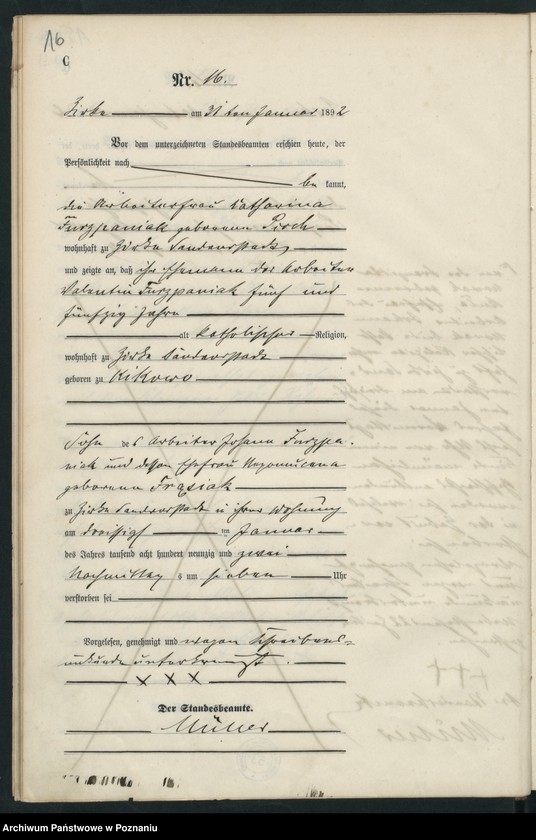 16
C
Nr. 16.
Zirke am 31 ten Januar 1892
Vor dem unterzeichneten Standesbeamten erschien heute, der
Persönlichkeit nach
be kannt,
die Arbeiterfrau Catharina
Furzpaniak geborene Pirch
wohnhaft zu Zirke Landerstade
und zeigte an, daß ihr Ehemann der Arbeiter
Valentin Furzpaniak fünf und
fünfzig Jahre
alt katholischer Religion,
wohnhaft zu Zirke
geboren zu Kikowo
Sohn des Arbeiter Johann Furzpa-
niak und dessen Ehefrau Nepomucena
geborene Frąsiak
zu Zirke in ihrer Wohnung
am dreißigsten Januar
des Jahres tausend acht hundert neunzig und zwei
Nachmittags um sieben Uhr
verstorben sei
Vorgelesen, genehmigt und wegen Schreibens-
unkunde unterkreuzt.
x x x
Der Standesbeamte.
Müller
Archiwum Państwowe w Poznaniu